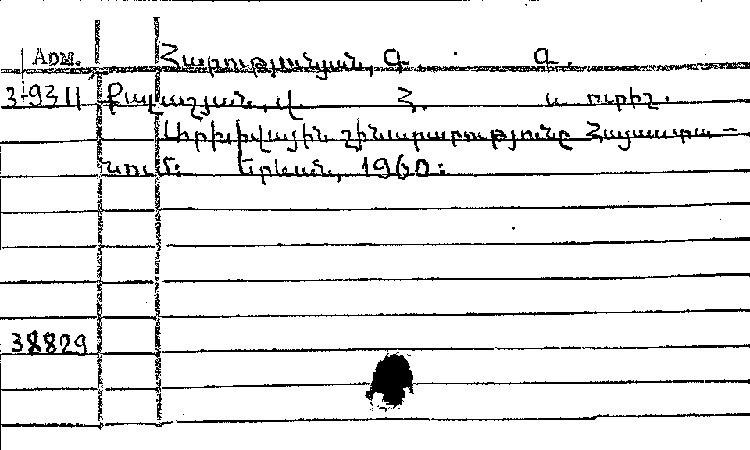 ADM.
Հարությունյան, Գ. Գ.
3-9311 Քալաշյան, Վ. Հ. և ուրիշ.
Արխիվային շինարարությունը Հայաստա-
նում: Երևան, 1960:
38829